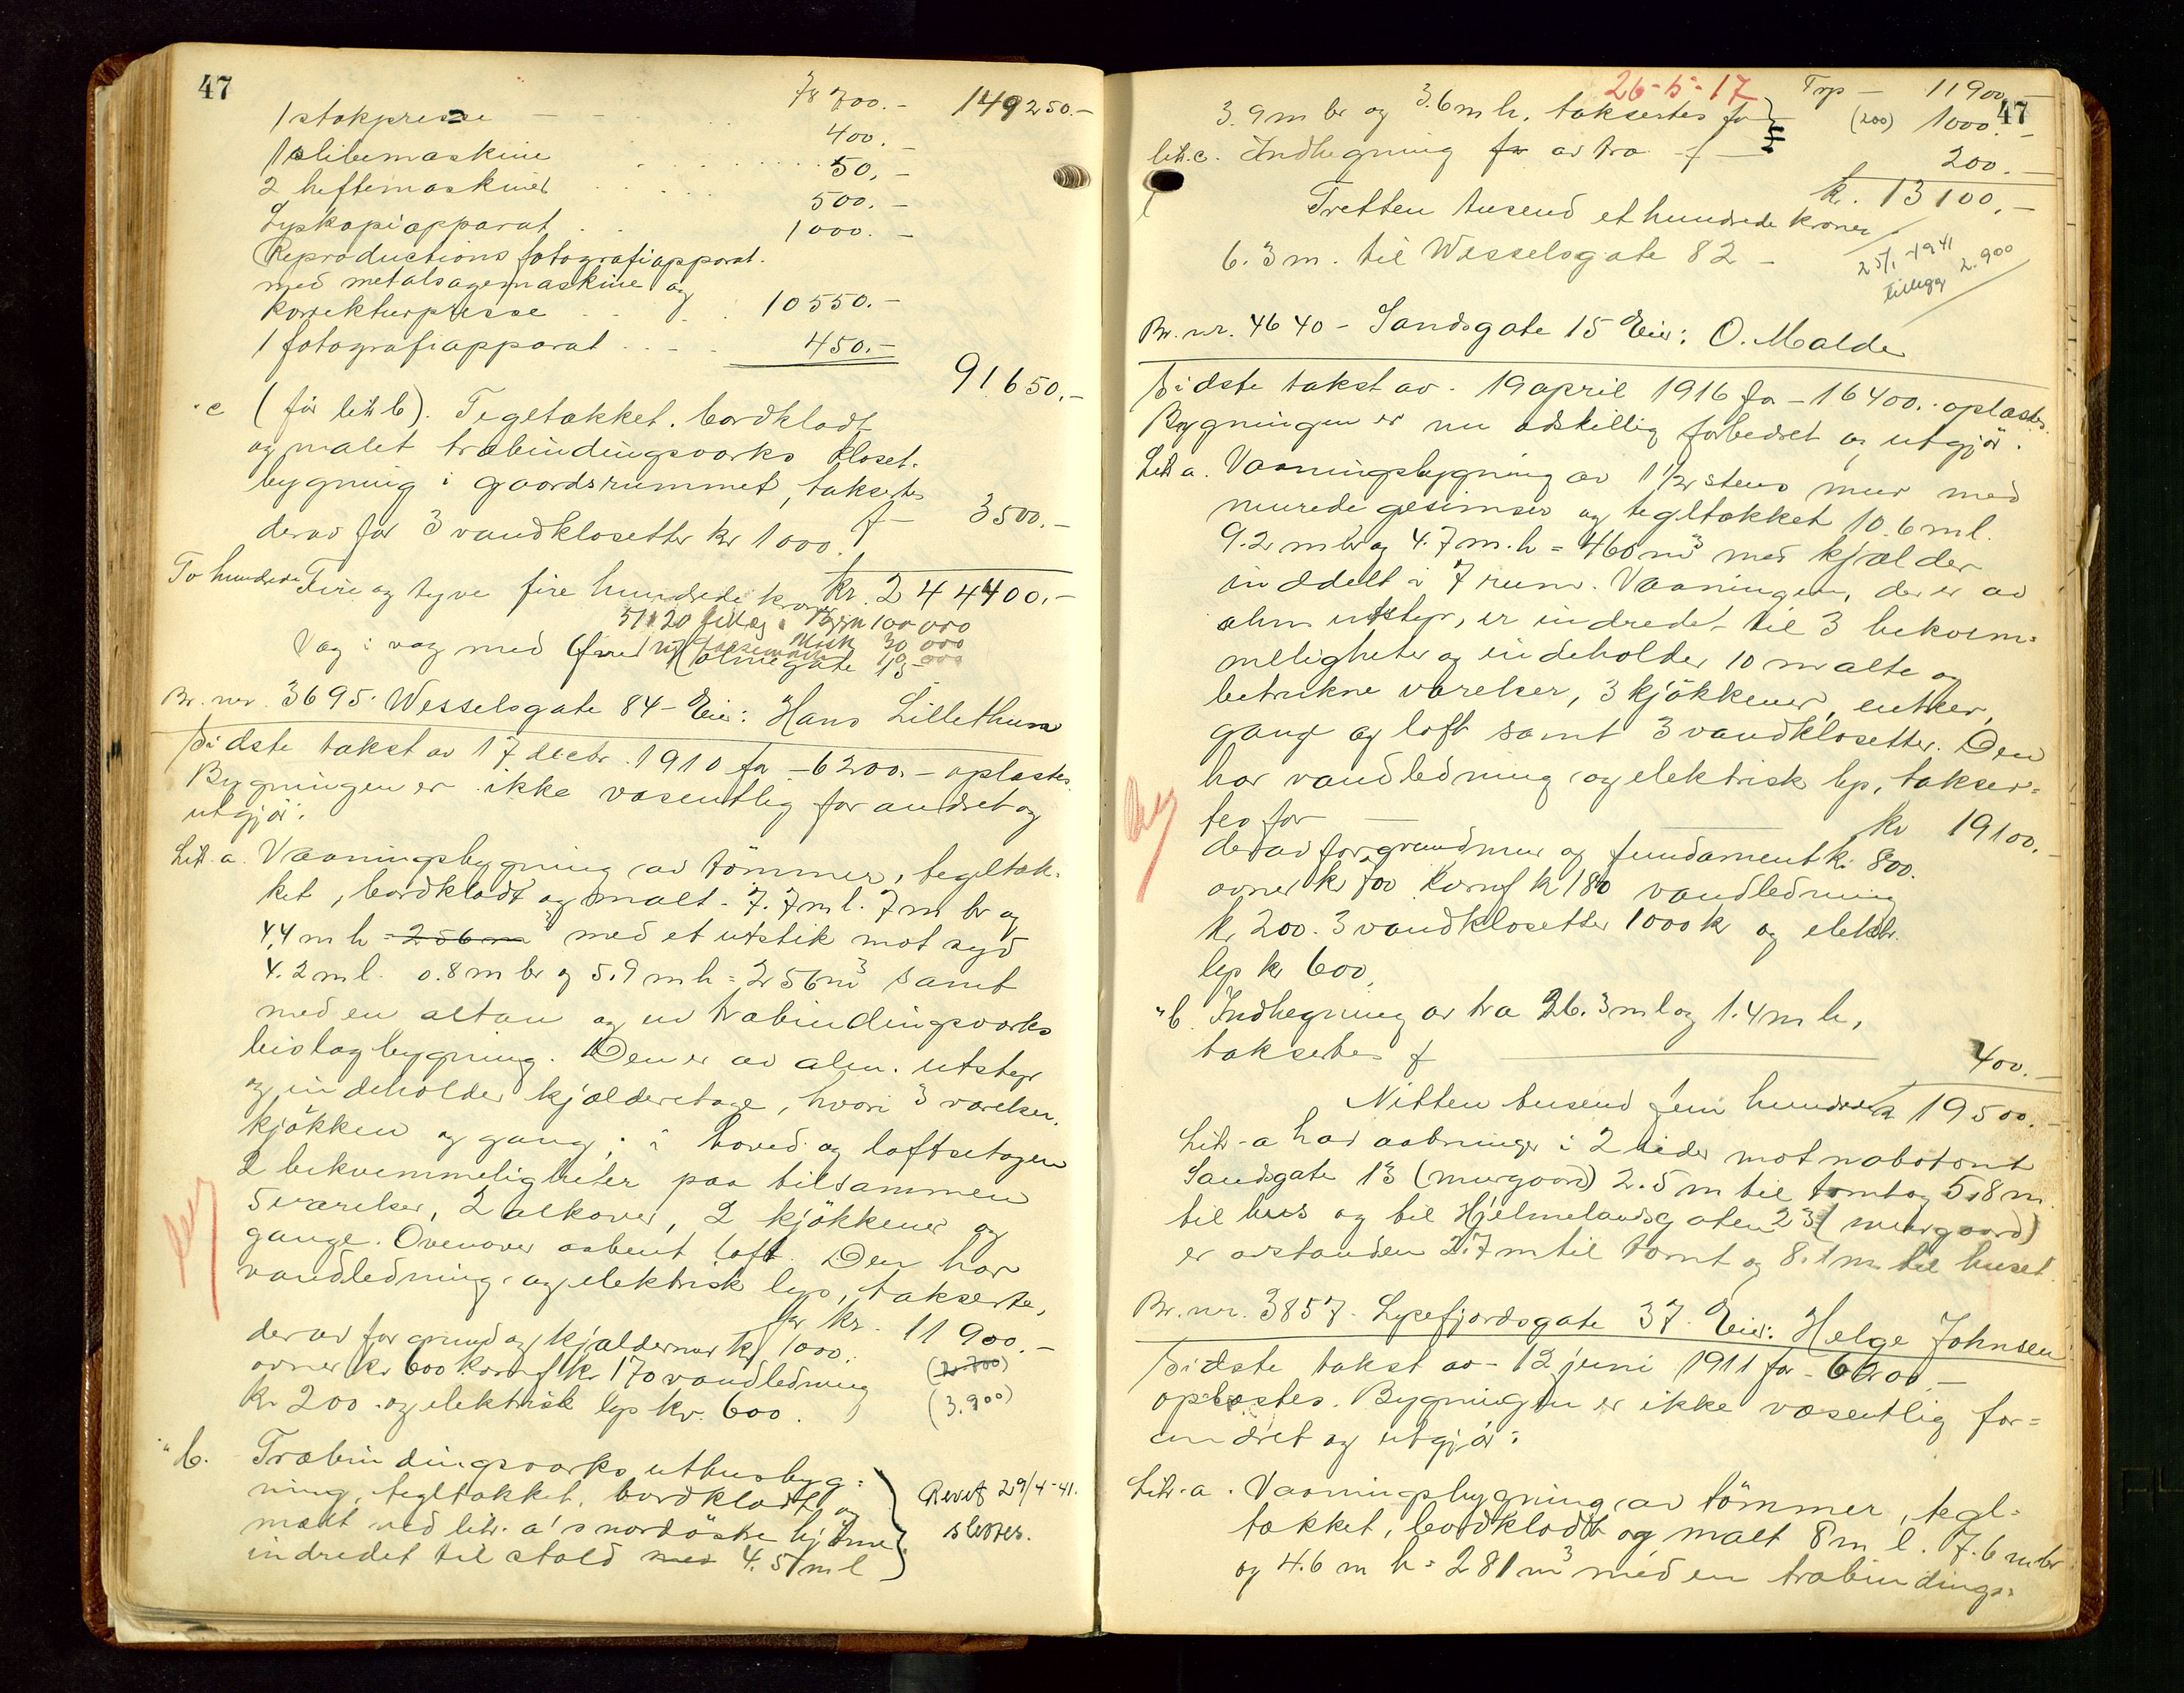 47
78 700.- 149 250.-
1 stokpresse - - 400.-
1 slibemaskine 50.-
2 heftemaskiner 500.-
Lyskopiapparat 1000.-
Reproductionsfotografiapparat.
med metalsagemaskine og
korrekturpresse 10 550.-
1 fotografiapparat 450.-
91 650.-
" c (før litr b). Tegltækket, bordklædt
og malet træbindingsverks kloset-
bygning i gaardsrummet, takseres
f - 3500.-
derav for 3 vandklosetter kr 1000.
kr. 244400.-
To hundrede Fire og tyve fire hundrede kroner
Væg i væg med Øvre Holmegate
Br. nr. 3695. Wesselsgate 84 - Eier: Hans Lillethun
Sidste takst av 17 decbr. 1910 for - 6200.- oplæstes.
Bygningen er ikke væsentlig forandret og
utgjør:
Litr. a. Vaaningsbygning av tømmer, tegltæk-
ket, bordklædt og malt - 7.7 m l. 7 m br og
4,4 m h = 256 m³ med et utstik mot syd
4.2 m l. 0.8 m br og 5.9 m h = 256 m³ samt
med en altan og en træbindingsverks
bislagbygning. Den er av alm. utstyr
og indeholder kjælderetage, hvori 3 værelser,
kjøkken og gang; i hoved og loftsetagen
2 bekvemmeligheter paa tilsammen
5 værelser, 2 alkover, 2 kjøkkener og
gange. Ovenover aabent loft. Den har
vandledning og elektrisk lys, takseres
for kr. 11 900.-
derav for grund og kjældermur kr 1000.
ovner kr 600 komf kr 170 vandledning (2.700)
kr 200.- og elektrisk lys kr. 600. (3.900)
" b. Træbindingsverks uthusbyg-
ning, tegltækket, bordklædt og
malt ved litr. a's nordøstre hjørne
indredet til stald med 4.5 m l
Revet 29/4-41.
slettes.
47
26-5-17
Trp - 11900.-
3.9 m br og 3.6 m h. takseres for (200) 1000.-
litr. c. Indhegning for av træ - f - 200.-
kr. 13100.-
Tretten tusend et hundrede kroner
6.3 m. til Wesselsgate 82 -
25/1-1941
tillegg 2.900
Br. nr. 4640 - Sandsgate 15 Eier: O. Malde
Sidste takst av - 19 april 1916 for - 16400.- oplæstes.
Bygningen er nu adskillig forbedret og utgjør:
Litr a. Vaaningsbygning av 1 1/2 stens mur med
murede gesimser og tegltækket 10.6 m l.
9.2 m br og 4.7 m. h = 460 m³ med kjælder
inddelt i 7 rum. Vaaningen, der er av
alm utstyr, er indredet til 3 bekvem-
meligheter og indeholder 10 malte og
betrukne værelser, 3 kjøkkener, entreer,
gang og loft samt 3 vandklosetter. Den
har vandledning og elektrisk lys, takser-
tes for kr 19100.-
derav for grundmur og fundament kr 800.
ovner kr 700 komf kr 180 vandledning
kr 200. 3 vandklosetter 1000 kr og elektr.
lys kr 600.
" b. Indhegning av træ 26.3 m l og 1.4 m h,
takseres f 400.-
Nitten tusend fem hundrede kr 19500.-
Litr - a har aabninger i 2 sider mot nabotomt
Sandsgate 13 (murgaard) 2.5 m til tomt og 5.8 m
til hus og til Hjelmelandsgaten 23 (murgaard)
er avstanden 2.7 m til tomt og 8.1 m til huset.
Br. nr. 3857 - Lysefjordsgate 37. Eier: Helge Johnsen
Sidste takst av - 12 juni 1911 for - 6200.-
oplæstes. Bygningen er ikke væsentlig for-
andret og utgjør:
Litr. a. Vaaningsbygning av tømmer, tegl-
tækket, bordklædt og malt 8 m l. 7.6 m br
og 4.6 m h = 281 m³ med en træbindings-